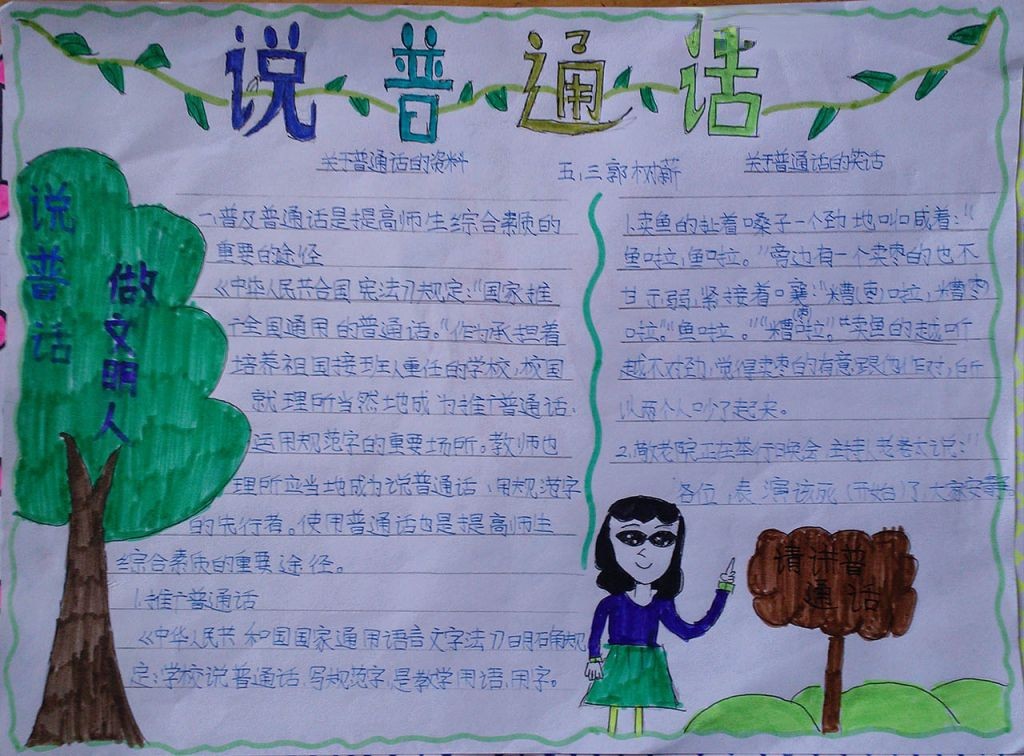 说普通话
关于普通话的资料
五、三郭树薪
关于普通话的笑话
说普话
做文明人
一、普及普通话是提高师生综合素质的
重要的途径
《中华人民共合国宪法》规定:“国家推
广全国通用的普通话。”作为承担着
培养祖国接班人重任的学校,校园
就理所当然地成为推广普通话、
运用规范字的重要场所。教师也
理所应当地成为说普通话、用规范字
的先行者。使用普通话也是提高师生
综合素质的重要途径。
1.推广普通话
《中华人民共和国国家通用语言文字法》明确规
定:学校说普通话,写规范字,是教学用语、用字。
1.卖鱼的扯着嗓子一个劲地叫喊着:“
鱼啦,鱼啦。”旁边有一个卖枣的也不
甘示弱,紧接着嚷:“糟(枣)啦,糟(枣)
啦。”“鱼啦。”“糟(枣)啦。”卖鱼的越听
越不对劲,觉得卖枣的有意跟他作对,所
以两个人吵了起来。
2.敬老院正在举行晚会,主持人老太太说:“
各位,表演该死(开始)了,大家安静
请讲普
通话